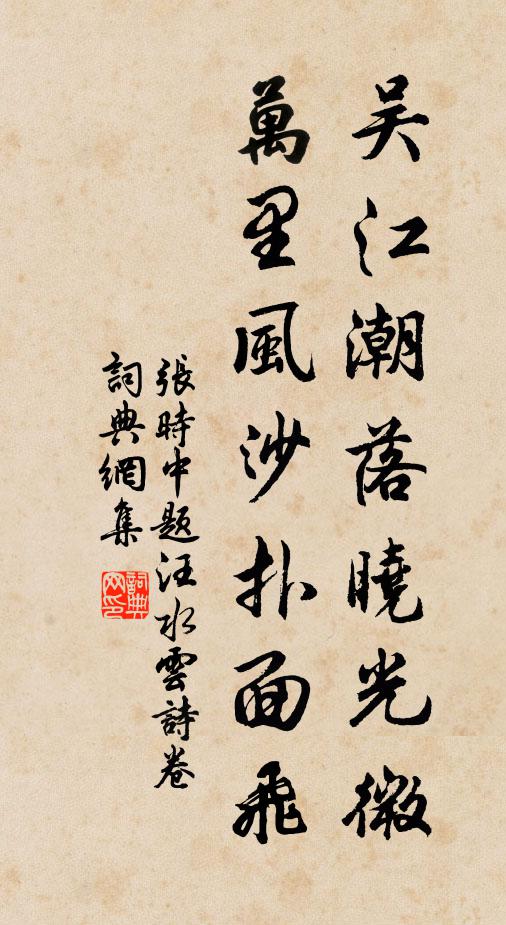 吴江潮落曉光微
萬里風沙扑面飛
張時中题汪水雲詩卷
詞典網集
詞典网印